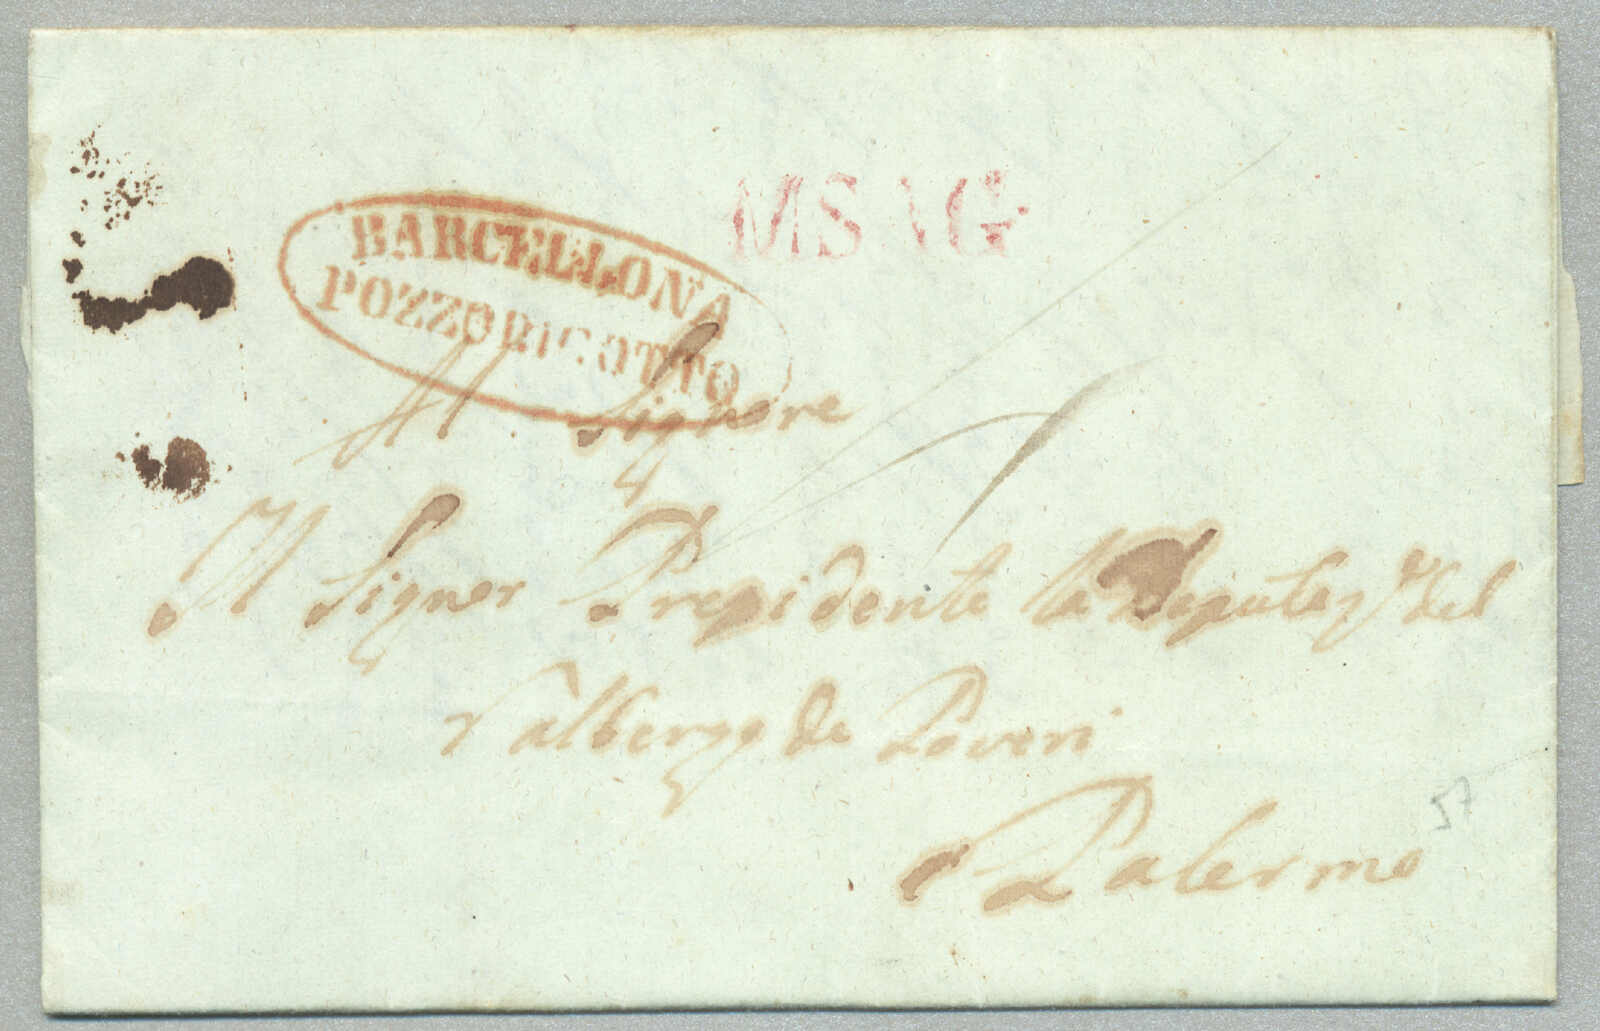 BARCELLONA
POZZODIGOTTO
MSNG
Al Signore
Il Signor Presidente la Deputaz.e del
l'albergo de Poveri
Palermo
57